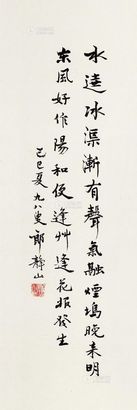 水遶冰渠漸有聲氣融煙塢晚來明
東風好作陽和使逢艸逢花報發生
己巳夏九八叟郎靜山